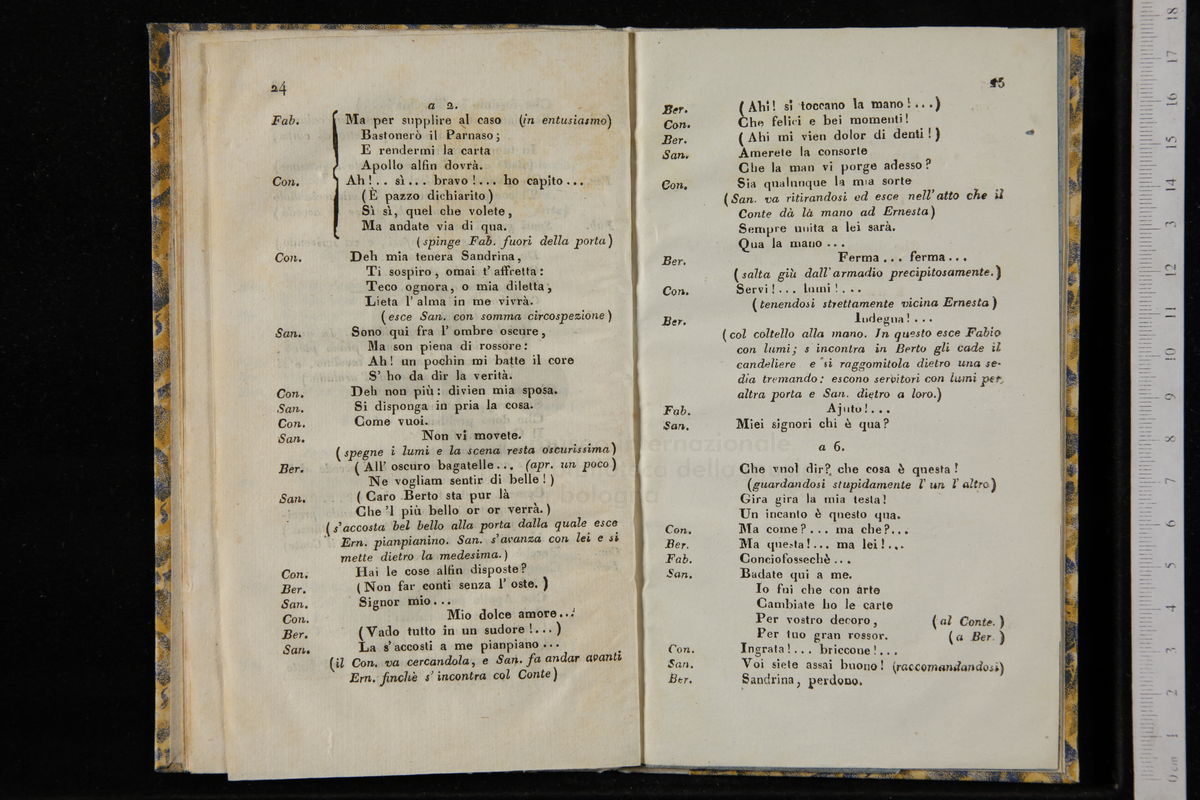 24
a 2.
Fab. Ma per supplire al caso (in entusiasmo)
Bastonerò il Parnaso;
E rendermi la carta
Apollo alfin dovrà.
Con. Ah!.. sì... bravo!... ho capito...
(È pazzo dichiarito)
Sì sì, quel che volete,
Ma andate via di qua.
(spinge Fab. fuori della porta)
Con. Deh mia tenera Sandrina,
Ti sospiro, omai t'affretta:
Teco ognora, o mia diletta,
Lieta l'alma in me vivrà.
(esce San. con somma circospezione)
San. Sono qui fra l'ombre oscure,
Ma son piena di rossore:
Ah! un pochin mi batte il core
S'ho da dir la verità.
Con. Deh non più: divien mia sposa.
San. Si disponga in pria la cosa.
Con. Come vuoi.
San. Non vi movete.
(spegne i lumi e la scena resta oscurissima)
Ber. (All'oscuro bagatelle... (apr. un poco)
Ne vogliam sentir di belle!)
San. (Caro Berto sta pur là
Che 'l più bello or or verrà.)
(s'accosta bel bello alla porta dalla quale esce
Ern. pianpianino. San. s'avanza con lei e si
mette dietro la medesima.)
Con. Hai le cose alfin disposte?
Ber. (Non far conti senza l'oste.)
San. Signor mio...
Con. Mio dolce amore...
Ber. (Vado tutto in un sudore!...)
San. La s'accosti a me pianpiano...
(il Con. va cercandola, e San. fa andar avanti
Ern. finchè s'incontra col Conte)
25
Ber. (Ahi! si toccano la mano!...)
Con. Che felici e bei momenti!
Ber. (Ahi mi vien dolor di denti!)
San. Amerete la consorte
Che la man vi porge adesso?
Con. Sia qualunque la mia sorte
(San. va ritirandosi ed esce nell'atto che il
Conte dà la mano ad Ernesta)
Sempre unita a lei sarà.
Qua la mano...
Ber. Ferma... ferma...
(salta giù dall'armadio precipitosamente.)
Con. Servi!... lumi!...
(tenendosi strettamente vicina Ernesta)
Ber. Indegna!...
(col coltello alla mano. In questo esce Fabio
con lumi; s incontra in Berto gli cade il
candeliere e si raggomitola dietro una se-
dia tremando: escono servitori con lumi per
altra porta e San. dietro a loro.)
Fab. Ajuto!...
San. Miei signori chi è qua?
a 6.
Che vuol dir? che cosa è questa!
(guardandosi stupidamente l'un l'altro)
Gira gira la mia testa!
Un incanto è questo qua.
Con. Ma come?... ma che?...
Ber. Ma questa!... ma lei!...
Fab. Conciofossechè...
San. Badate qui a me.
Io fui che con arte
Cambiate ho le carte
Per vostro decoro, (al Conte.)
Per tuo gran rossor. (a Ber.)
Con. Ingrata!... briccone!...
San. Voi siete assai buono! (raccomandandosi)
Ber. Sandrina, perdono.